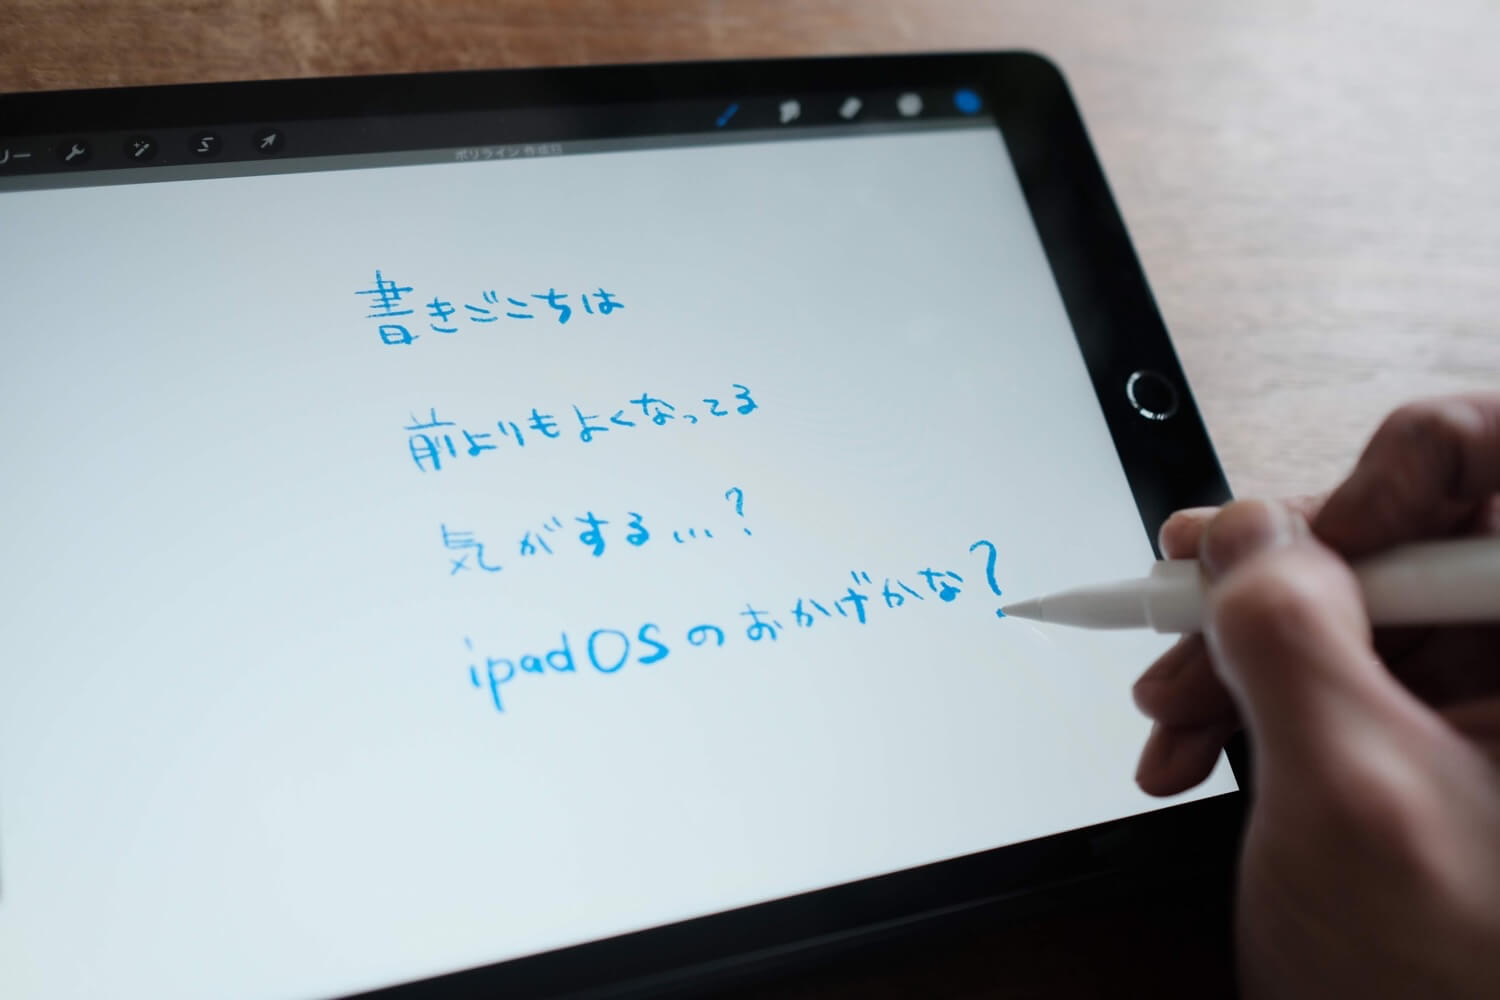 リー
ポリライン 作成日
書きごこちは
前よりもよくなってる
気がする...?
ipadOSのおかげかな?